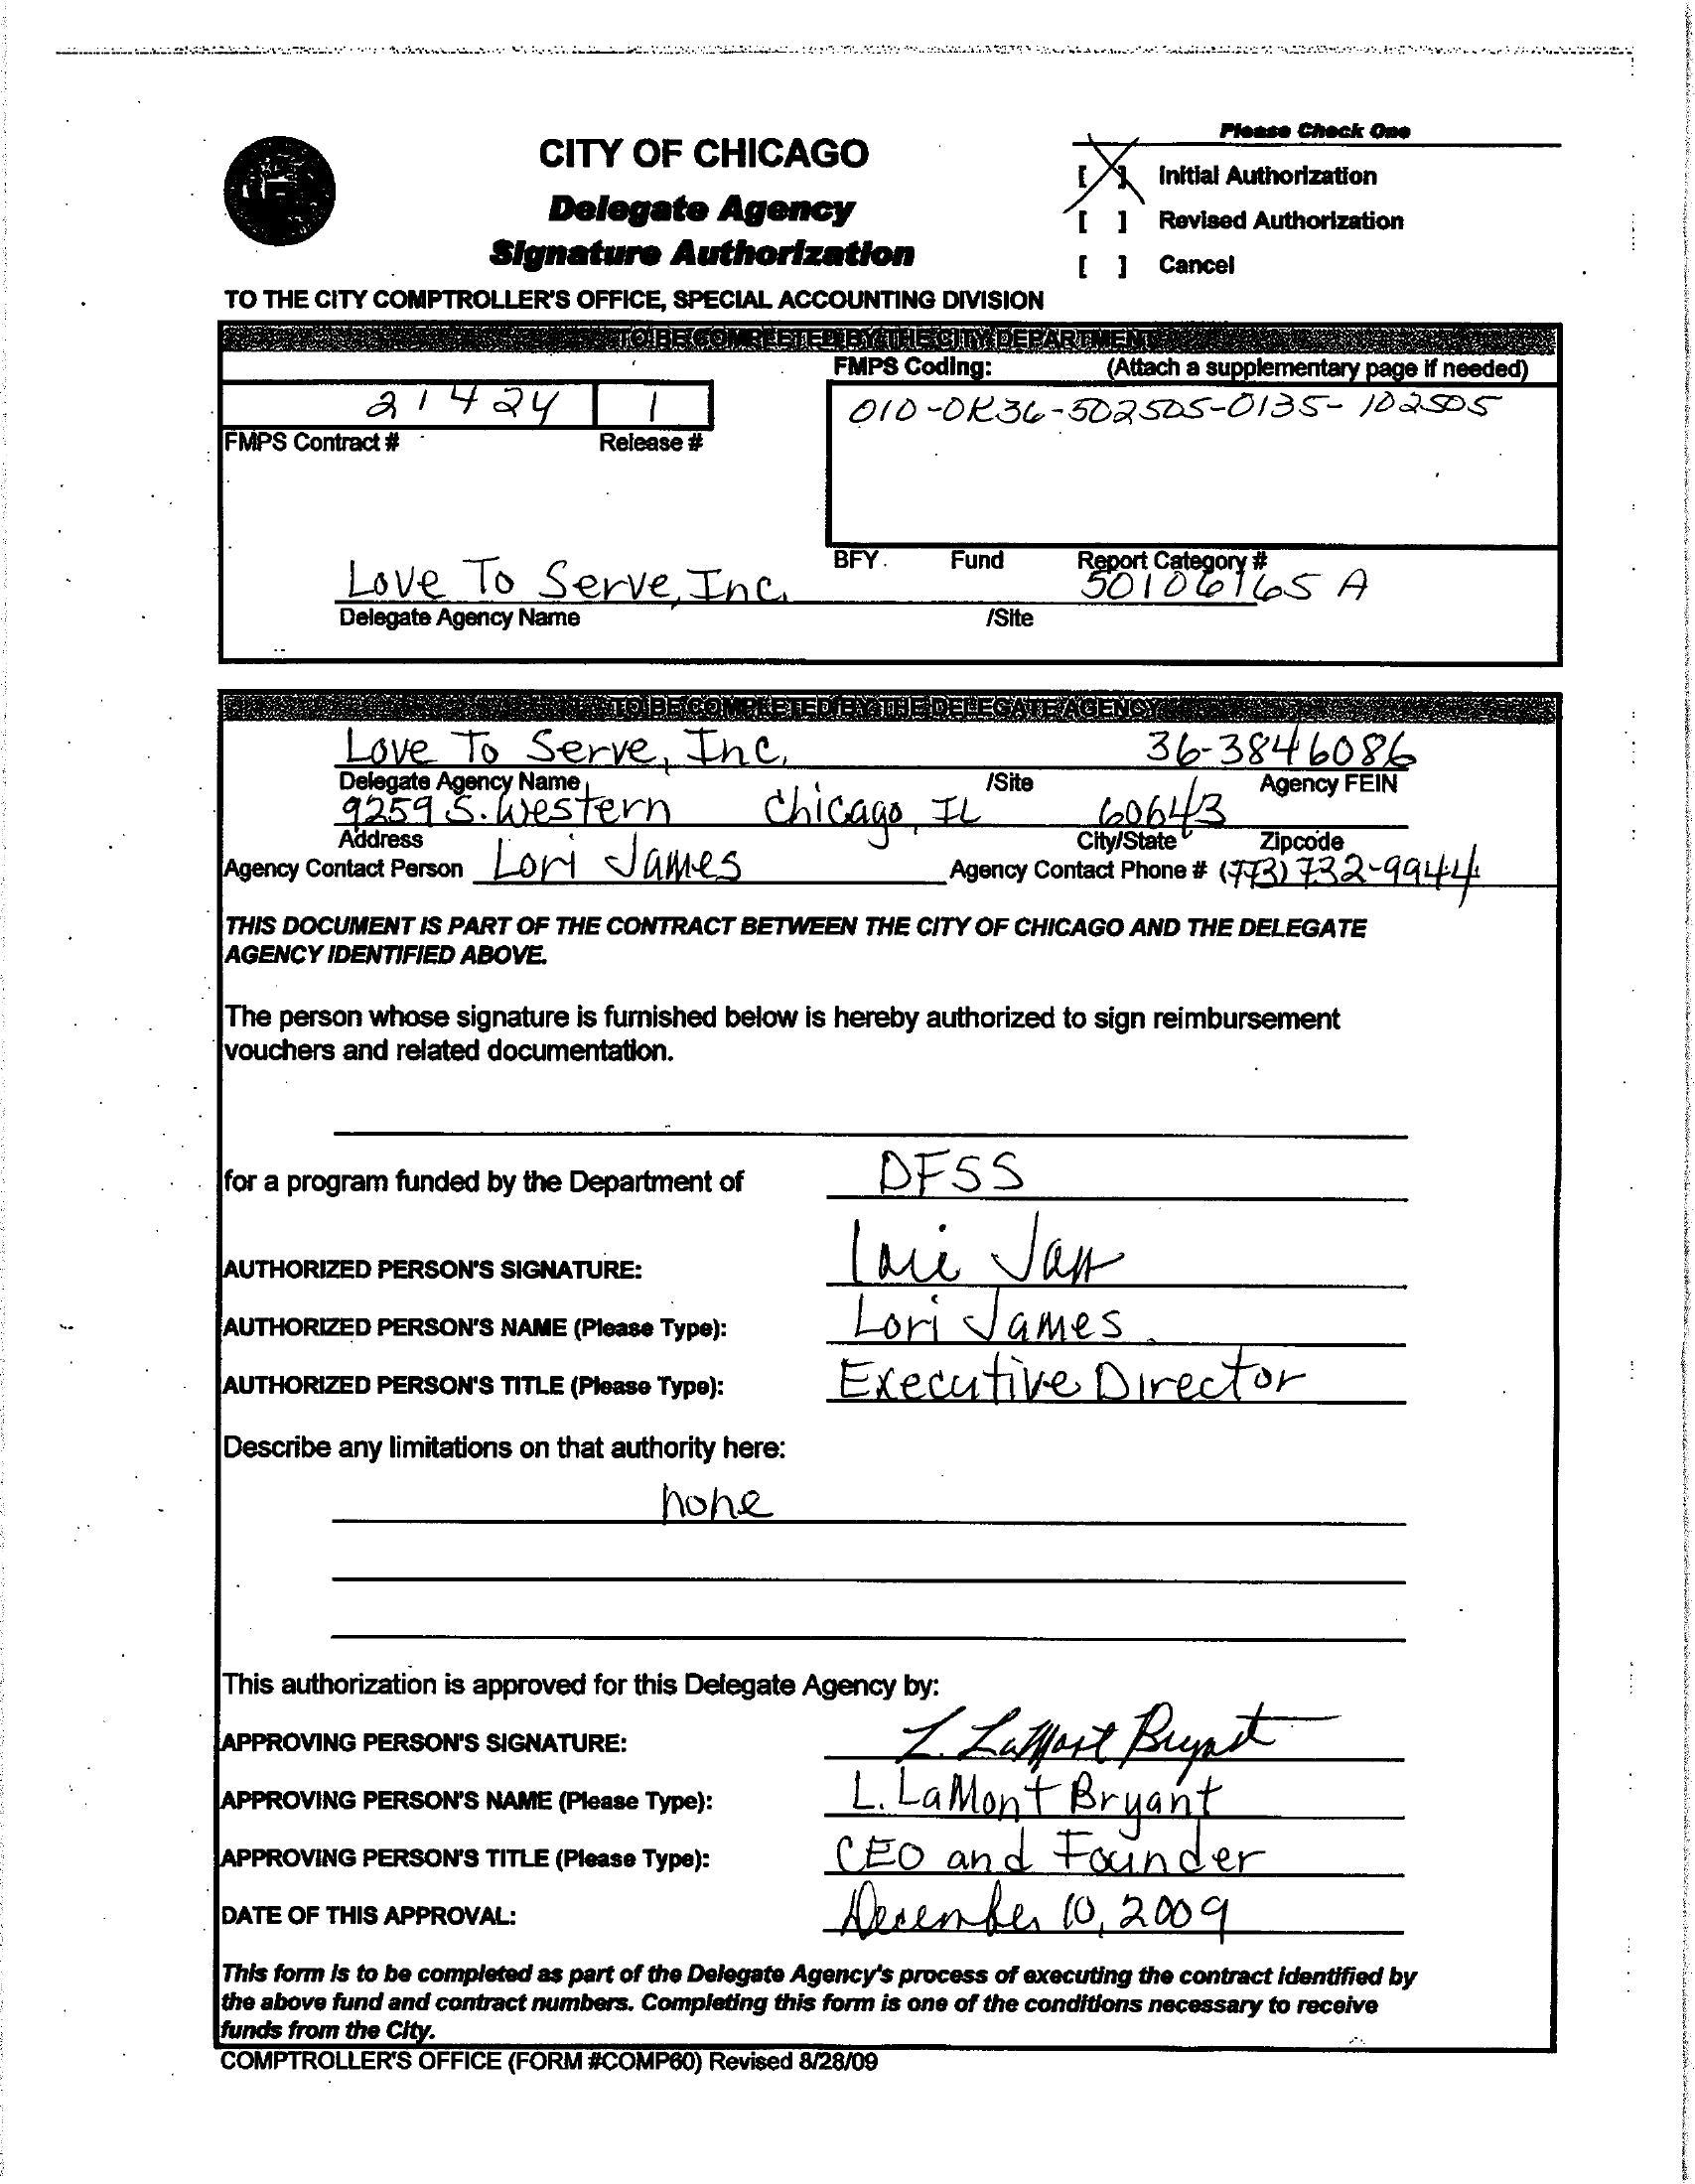 Please Check One
CITY OF CHICAGO
Delegate Agency
Signature Authorization
[X] Initial Authorization
[ ] Revised Authorization
[ ] Cancel
TO THE CITY COMPTROLLER'S OFFICE, SPECIAL ACCOUNTING DIVISION
TO BE COMPLETED BY THE CITY DEPARTMENT
FMPS Coding: (Attach a supplementary page if needed)
21424 1 010-OK36-502505-0135-102505
FMPS Contract # Release #
BFY Fund Report Category #
Love To Serve, Inc. 50106165 A
Delegate Agency Name /Site
TO BE COMPLETED BY THE DELEGATE AGENCY
Love To Serve, Inc. 36-3846086
Delegate Agency Name /Site Agency FEIN
9259 S. Western Chicago, IL 60643
Address City/State Zipcode
Agency Contact Person Lori James Agency Contact Phone # (773) 732-9944
THIS DOCUMENT IS PART OF THE CONTRACT BETWEEN THE CITY OF CHICAGO AND THE DELEGATE
AGENCY IDENTIFIED ABOVE.
The person whose signature is furnished below is hereby authorized to sign reimbursement
vouchers and related documentation.
for a program funded by the Department of DFSS
AUTHORIZED PERSON'S SIGNATURE: Lori Jam
AUTHORIZED PERSON'S NAME (Please Type): Lori James
AUTHORIZED PERSON'S TITLE (Please Type): Executive Director
Describe any limitations on that authority here:
none
This authorization is approved for this Delegate Agency by:
APPROVING PERSON'S SIGNATURE: L. LaMont Bryant
APPROVING PERSON'S NAME (Please Type): L. LaMont Bryant
APPROVING PERSON'S TITLE (Please Type): CEO and Founder
DATE OF THIS APPROVAL: December 10, 2009
This form is to be completed as part of the Delegate Agency's process of executing the contract identified by
the above fund and contract numbers. Completing this form is one of the conditions necessary to receive
funds from the City.
COMPTROLLER'S OFFICE (FORM #COMP60) Revised 8/28/09